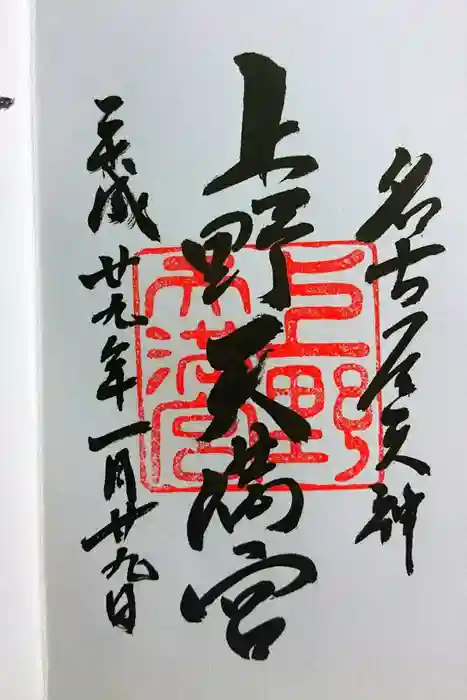 名古屋天神
上野天満宮
平成廿九年一月廿九日
上野
天満宮